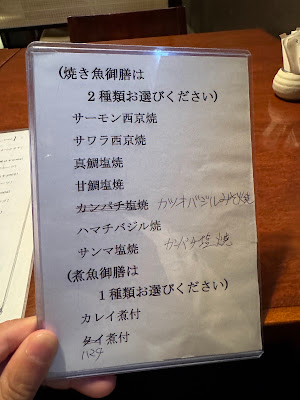 (焼き魚御膳は
2種類お選びください)
サーモン西京焼
サワラ西京焼
真鯛塩焼
甘鯛塩焼
カンパチ塩焼 カツオバジルみそ焼
ハマチバジル焼
サンマ塩焼 カンパチ塩焼
(煮魚御膳は
1種類お選びください)
カレイ煮付
タイ煮付
ハマチ